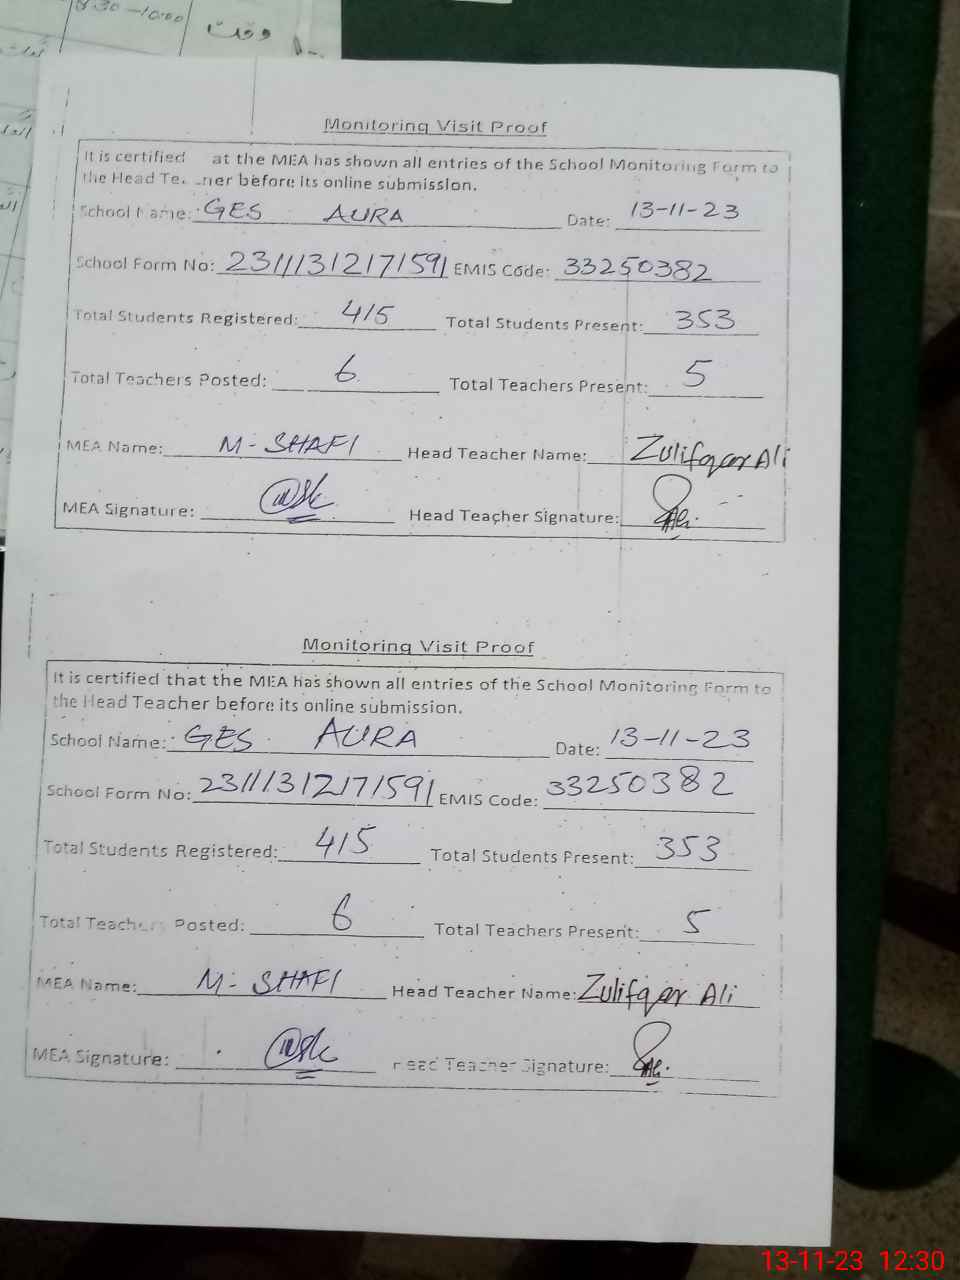 8:30-10:00
وقت
Monitoring Visit Proof
It is certified at the MEA has shown all entries of the School Monitoring Form to
the Head Te ner before its online submission.
School Name: GES AURA Date: 13-11-23
School Form No: 23111312171591 EMIS Code: 33250382
Total Students Registered: 415 Total Students Present: 353
Total Teachers Posted: 6 Total Teachers Present: 5
MEA Name: M- SHAFI Head Teacher Name: Zulifqar Ali
MEA Signature: Head Teacher Signature:
Monitoring Visit Proof
It is certified that the MEA has shown all entries of the School Monitoring Form to
the Head Teacher before its online submission.
School Name: GES AURA Date: 13-11-23
School Form No: 23111312171591 EMIS Code: 33250382
Total Students Registered: 415 Total Students Present: 353
Total Teachers Posted: 6 Total Teachers Present: 5
MEA Name: M- SHAFI Head Teacher Name: Zulifqar Ali
MEA Signature: Head Teacher Signature:
13-11-23 12:30